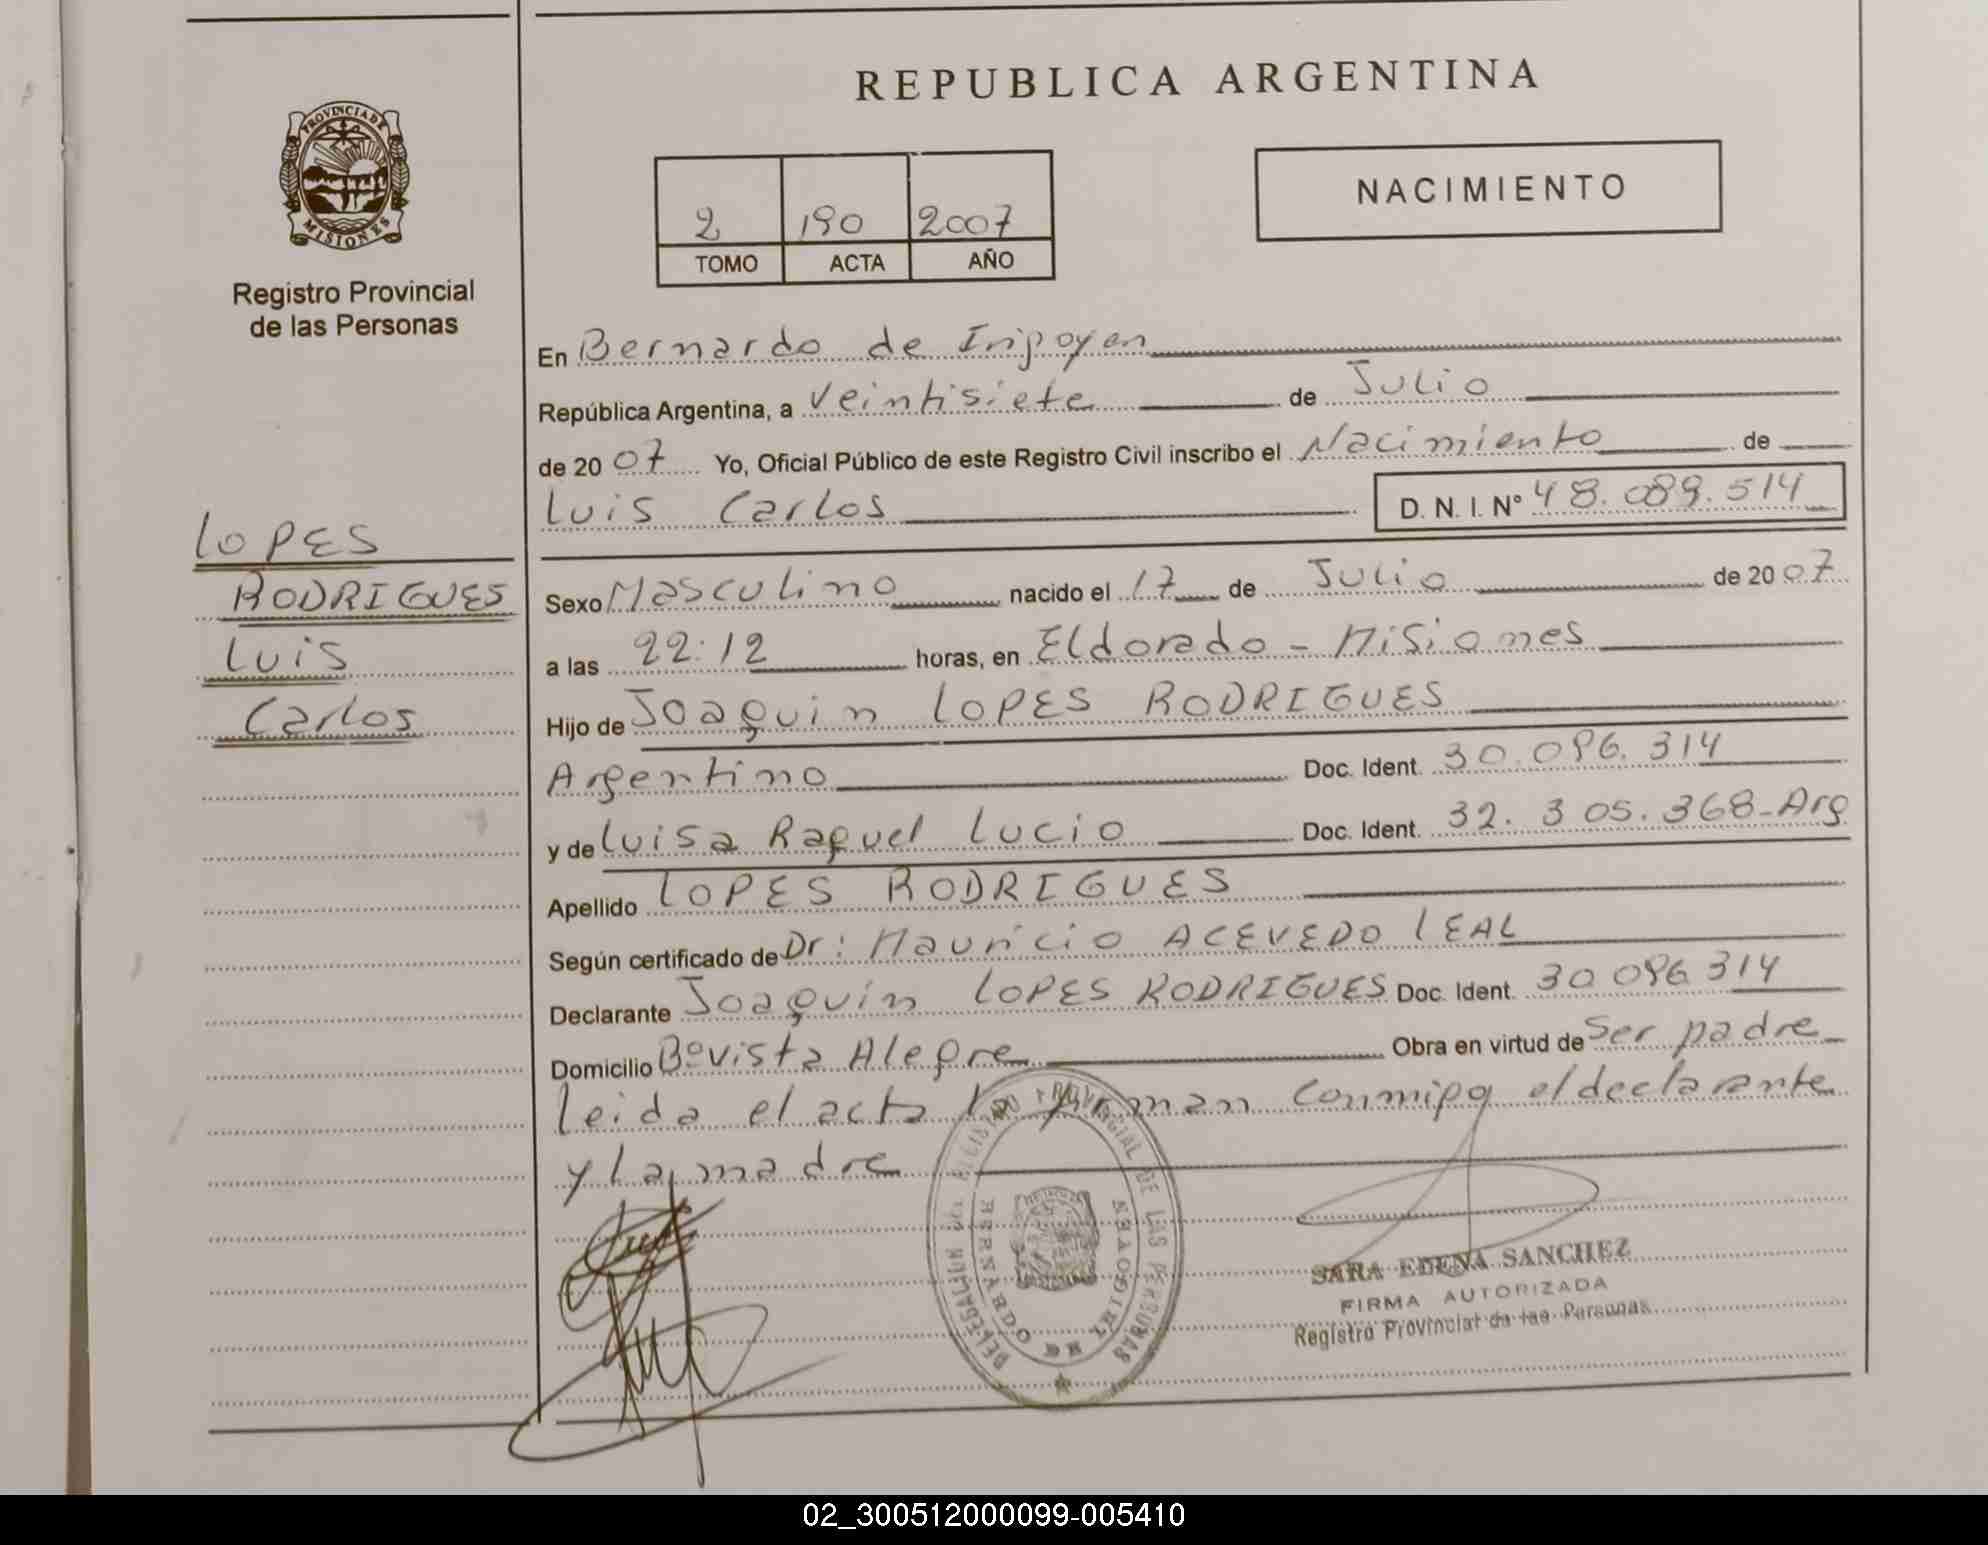 REPUBLICA ARGENTINA
PROVINCIA DE
MISIONES
Registro Provincial
de las Personas
NACIMIENTO
2 190 2007
TOMO ACTA AÑO
En Bernardo de Irigoyen
República Argentina, a Veintisiete de Julio
de 2007 Yo, Oficial Público de este Registro Civil inscribo el Nacimiento de
Luis Carlos D. N. I. N° 48.089.514
LOPES
RODRIGUES
Luis
Carlos
Sexo Masculino nacido el 17 de Julio de 2007
a las 22:12 horas, en Eldorado - Misiones
Hijo de Joaquin LOPES RODRIGUES
Argentino Doc. Ident. 30.096.314
y de Luisa Raquel Lucio Doc. Ident. 32.305.368-Arg
Apellido LOPES RODRIGUES
Según certificado de Dr: Mauricio ACEVEDO LEAL
Declarante Joaquín LOPES RODRIGUES Doc. Ident. 30 096 314
Domicilio B° vista Alegre Obra en virtud de Ser padre
leida el acta la firman conmigo el declarante
y la madre
DELEGACION REGISTRO PROVINCIAL DE LAS PERSONAS
BERNARDO DE IRIGOYEN
SARA EDENA SANCHEZ
FIRMA AUTORIZADA
Registro Provincial de las Personas
02_300512000099-005410